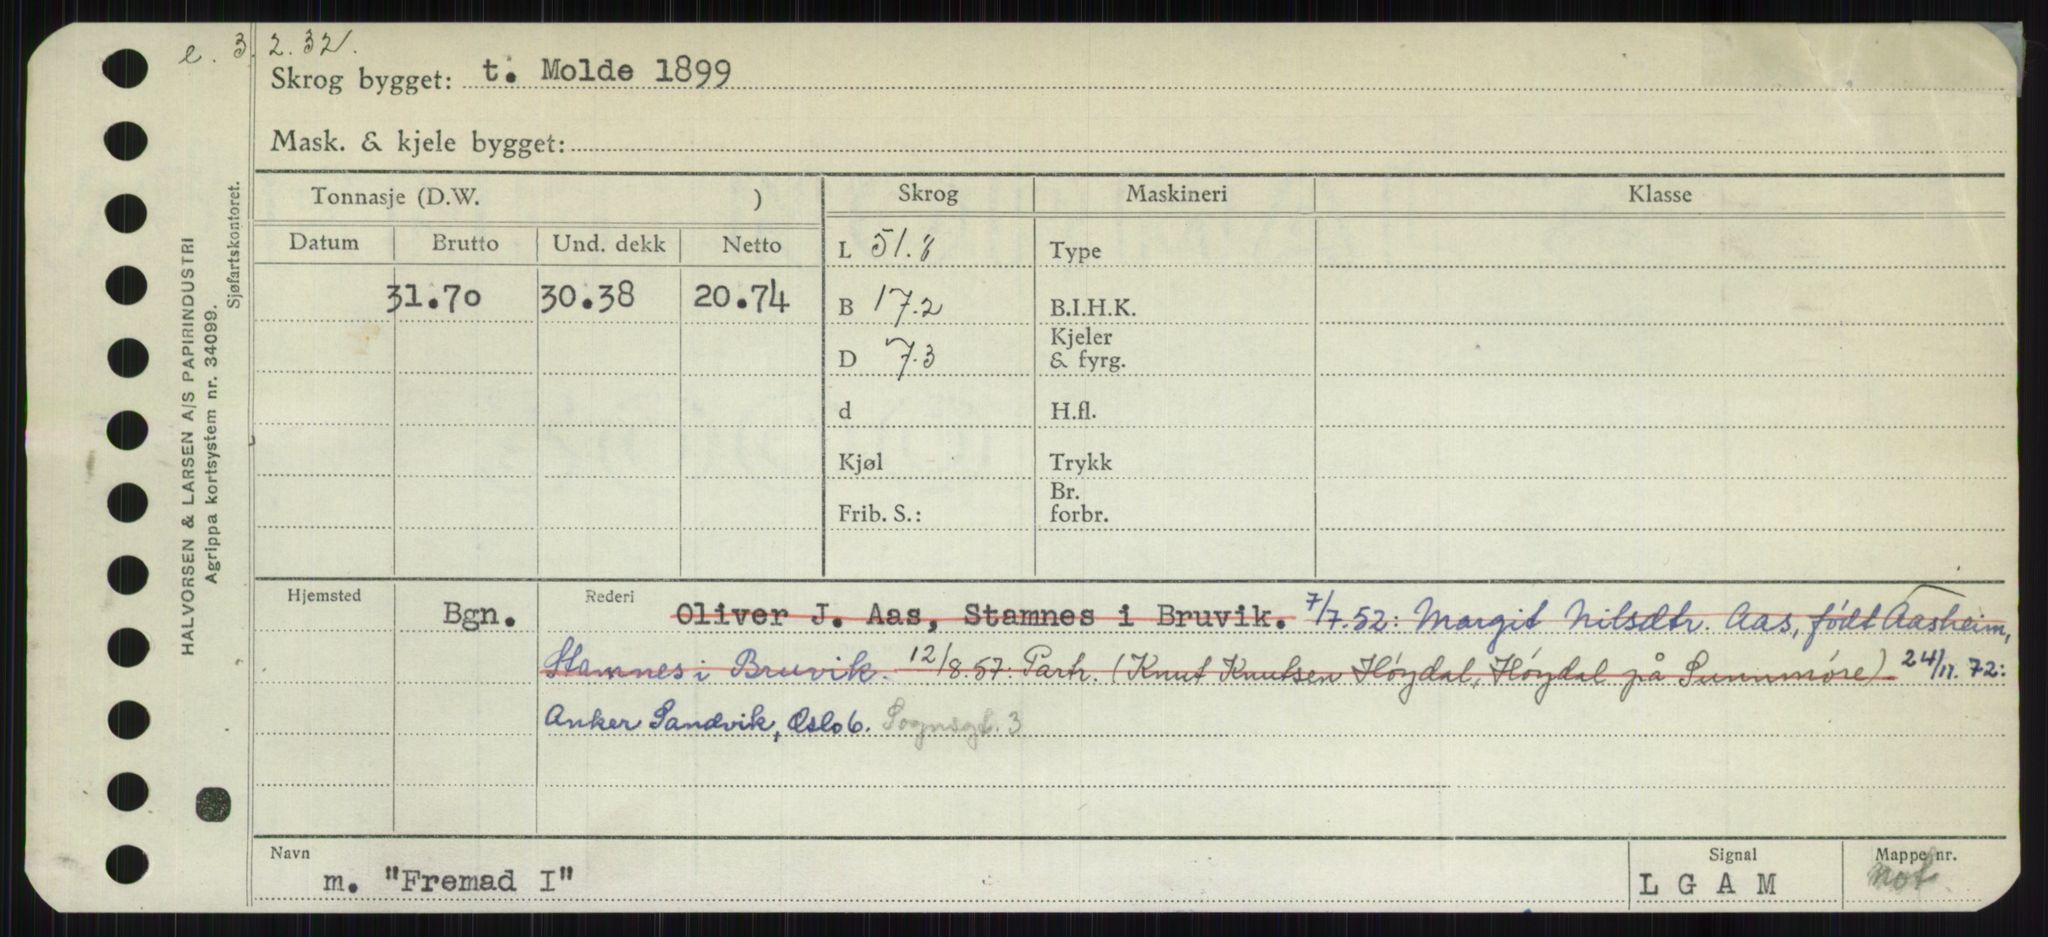 e. 3.2.32.
Skrog bygget: t. Molde 1899
Mask. & kjele bygget:
HALVORSEN & LARSEN A/S PAPIRINDUSTRI
Agrippa kortsystem nr. 34099.
Sjøfartskontoret.
Tonnasje (D.W. )
Skrog
Maskineri
Klasse
Datum Brutto Und. dekk Netto
31.70 30.38 20.74
L 51.8
B 17.2
D 7.3
d
Kjøl
Frib. S.:
Type
B.I.H.K.
Kjeler
& fyrg.
H.fl.
Trykk
Br.
forbr.
Hjemsted Bgn.
Rederi Oliver J. Aas, Stamnes i Bruvik. 7/7.52: Margit Nilsdtr. Aas, født Aasheim,
Stamnes i Bruvik. 12/8.57: Partr. (Knut Knutsen Høydal, Høydal på Sunnmøre) 24/11.72:
Anker Sandvik, Oslo 6. Sognsgt. 3
Navn
m. "Fremad I"
Signal
L G A M
Mappe nr.
not